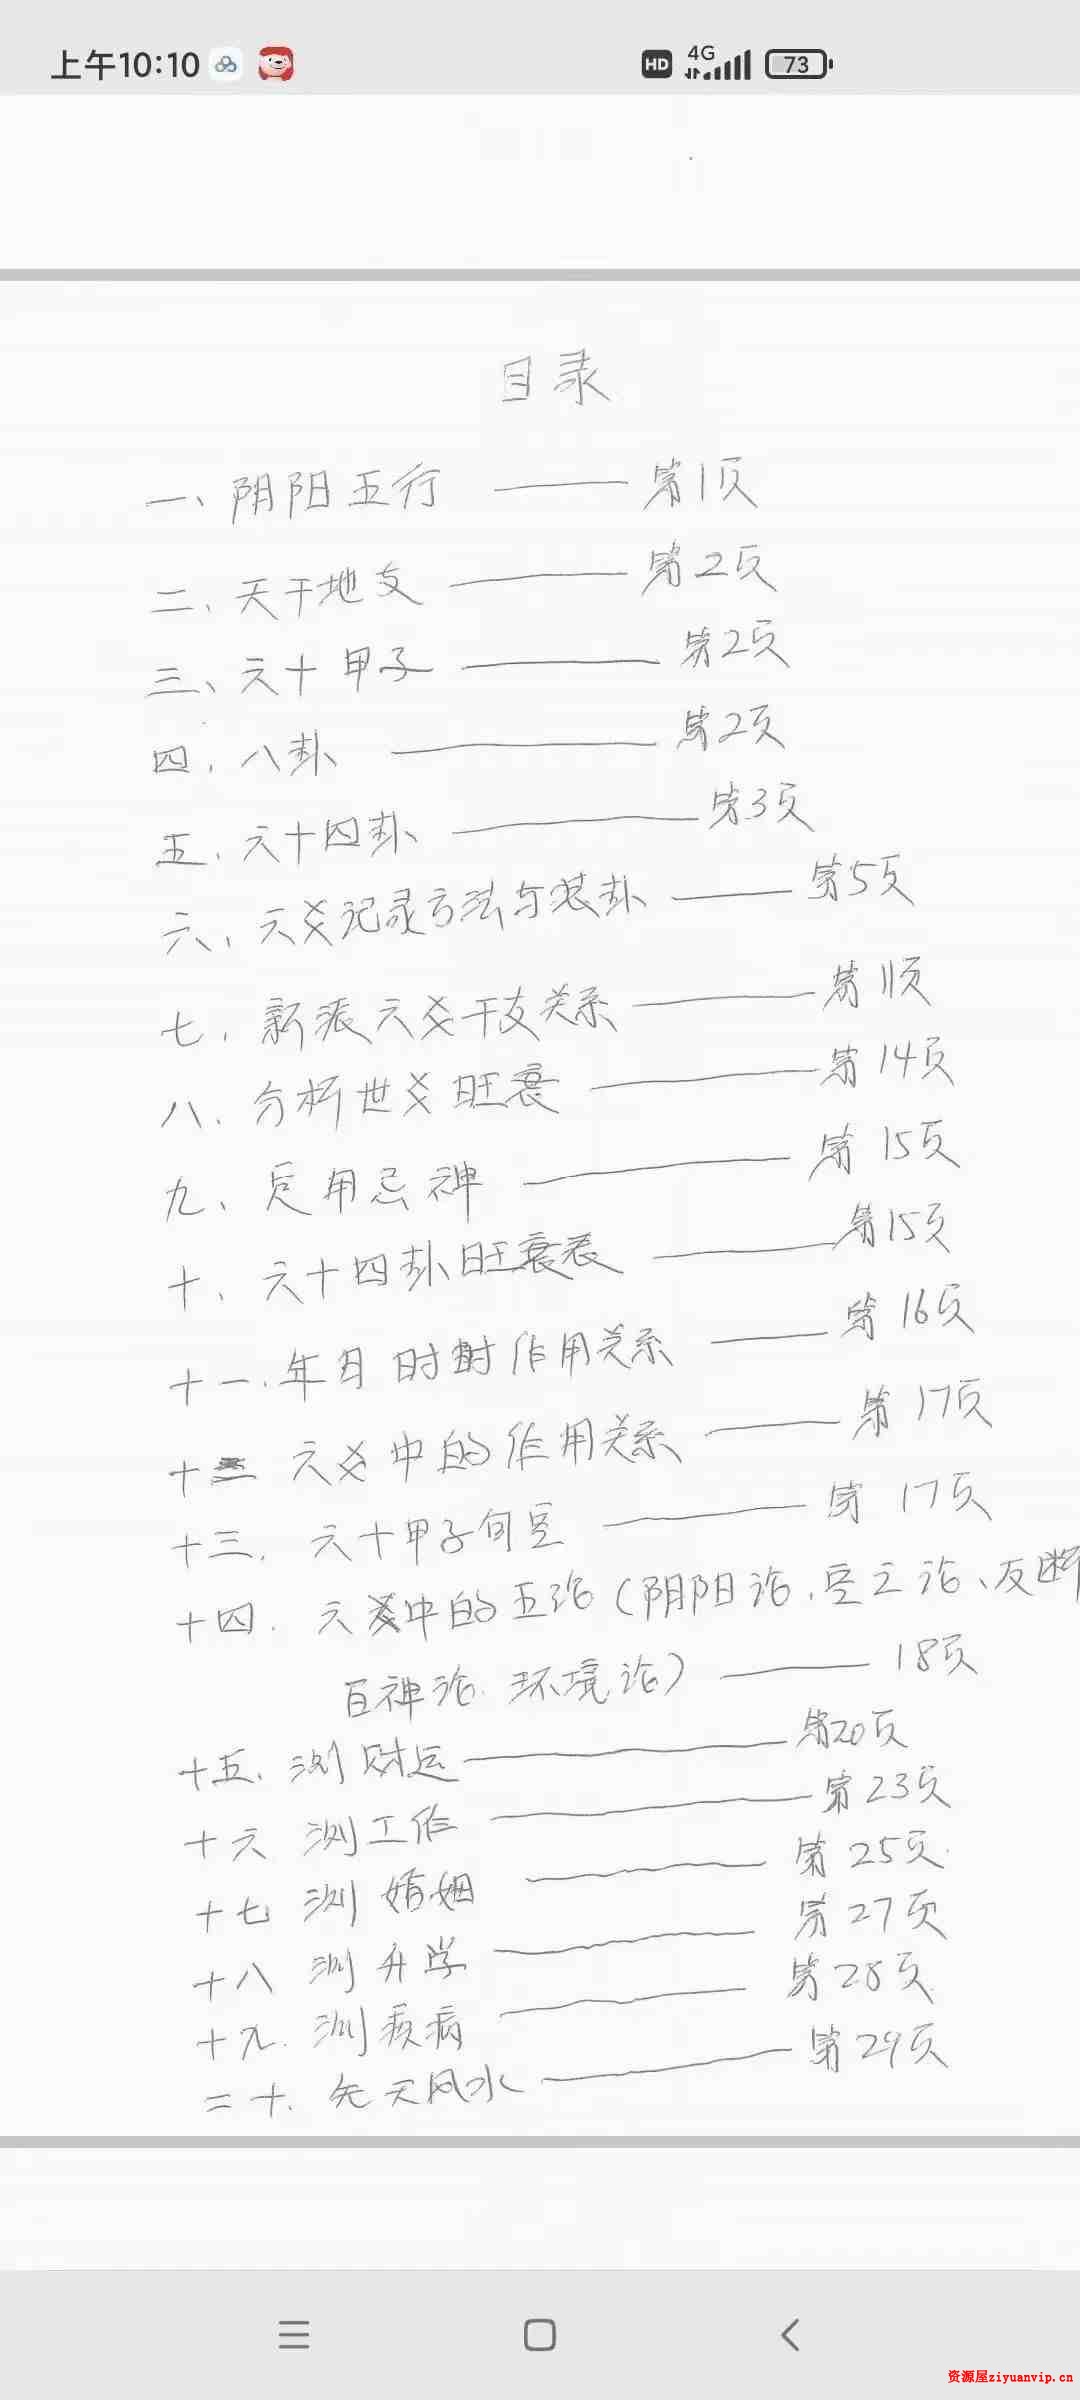 上午10:10
HD 4G 73
目录
一、阴阳五行 —— 第1页
二、天干地支 —— 第2页
三、六十甲子 —— 第2页
四、八卦 —— 第2页
五、六十四卦 —— 第3页
六、六爻记录方法与装卦 —— 第5页
七、新派六爻干支关系 —— 第11页
八、分析世爻旺衰 —— 第14页
九、定用忌神 —— 第15页
十、六十四卦旺衰表 —— 第15页
十一、年月时对作用关系 —— 第16页
十二 六爻中的作用关系 —— 第17页
十三、六十甲子旬空 —— 第17页
十四、六爻中的五论(阴阳论、空亡论、反断
百神论、环境论) —— 18页
十五、测财运 —— 第20页
十六 测工作 —— 第23页
十七 测婚姻 —— 第25页
十八 测升学 —— 第27页
十九、测疾病 —— 第28页
二十、先天风水 —— 第29页
资源屋ziyuanvip.cn